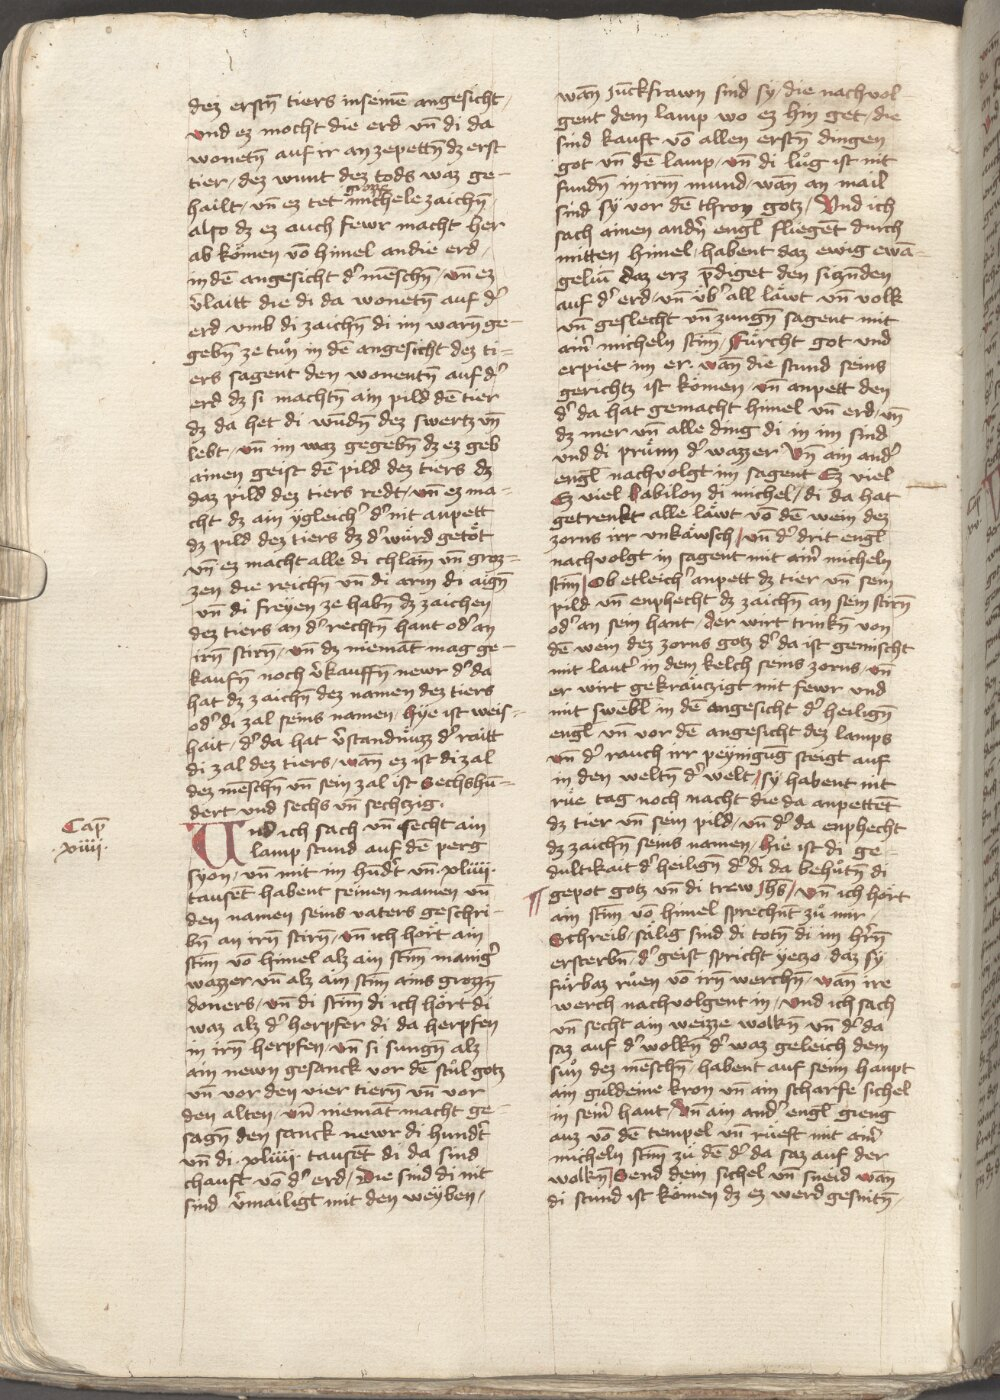 dez erstn̄ tiers in seinē angesicht /
vnd ez mocht die erd vn̄ di da
wonetn̄ auf ir an zepettn̄ dz erst
tier / dez wunt dez tods waz ge-
grozze
hailt / vn̄ ez tet michele zaichn̄ /
also dz ez auch fewr macht her
ab kömen vō himel an die erd /
in dē angesicht d' mēschn̄ / vn̄ ez
v̄laitt die di da wonetn̄ auf d'
erd vmb di zaichn̄ di im warn̄ ge-
gebn̄ ze tuͦn in dē angesicht dez ti=
ers sagent den wonentn̄ auf d'
erd dz si machtn̄ ain pild dē tier
dz da het di wūdn̄ dez swertz vn̄
lebt / vn̄ im waz gegebn̄ dz ez geb
ainen geist dē pild dez tiers dz
daz pild dez tiers redt / vn̄ ez ma-
cht dz ain ygleich' d' nit anpett
dz pild dez tiers dz d' würd getöt
vn̄ ez macht alle di chlain vn̄ groz=
zen die reichn̄ vn̄ di arm di aign̄
vn̄ di freyen ze habn̄ dz zaichen
dez tiers an d' rechtn̄ hant od' an
irn̄ stirn̄ / vn̄ dz niemāt mag ge-
kaufn̄ noch v̄kauffn̄ newr d' da
hat dz zaichn̄ dez namen dez tiers
od' di zal seins namen / hye ist weis=
hait / d' da hat v̄standnüzz d' raitt
di zal dez tiers / wān ez ist di zal
dez mēschn̄ vn̄ sein zal ist Sechshū=
dert vnd sechs vn̄ sechtzig .
Cap̄
.xiiii.
Und ich sach vn̄ secht ain
lamp stund auf dē perg
syon / vn̄ mit im hūdt' vn̄ .xliiii.
tausēt habent seinen namen vn̄
den namen seins vaters geschri-
bn̄ an irn̄ stirn̄ / vn̄ ich hört ain
stim̄ vō himel alz ain stim̄ manig'
wazzer vn̄ alz ain stim̄ ains grozzn̄
doners / vn̄ di stim̄ di ich hört di
waz alz d' herpfer di da herpfen
in irn̄ herpfen / vn̄ si sungn̄ alz
ain newn gesanck vor dē stuͦl gotz
vn̄ vor den vier tiern̄ vn̄ vor
den alten / vn̄ niemāt macht ge-
sagn̄ den sanck newr di hundt'
vn̄ di .xliiii. tausēt di da sind
chauft vō d' erd / Die sind di nit
sind v̄mailigt mit den weyben /
wān Junckfrawn sind sy / die nachvol-
gent dem lamp wo ez hin get / die
sind kauft vō allen erstn̄ dingen
got vn̄ dē lamp / vn̄ di luͦg ist nit
fundn̄ in irm̄ mund / wān an mail
sind sy vor dē thron gotz / Und ich
sach ainen andn̄ engl fliegēt durch
mitten himel / habent daz ewig ewā-
geliū daz erz p̄diget den siczn̄den
auf d' erd / vn̄ üb' all läwt vn̄ volk
vn̄ geslecht vn̄ zungn̄ sagent mit
ain' micheln stim̄ / Fürcht got vnd
erpiet im er . wān die stund seins
gerichtz ist kömen / vn̄ anpett den
d' da hat gemacht himel vn̄ erd / vn̄
dz mer vn̄ alle ding di in im sind
vnd di prünn d' wazzer Vn̄ ain and'
engl nachvolgt im sagent Ez viel
Ez viel Babilon di michel / di da hat
getrenkt alle läwt vō dē wein dez
zorns irr vnkäwsch / vn̄ d' drit engl
nachvolgt in sagent mit ain' micheln
stim̄ / Ob etleich' anpett dz tier vn̄ sein
pild vn̄ enphecht dz zaichn̄ an sein stirn̄
od' an sein hant / der wirt trinkn̄ von
dē wein dez zorns gotz d' da ist gemischt
mit laut' in dem kelch seins zorns / vn̄
er wirt gekräuczigt mit fewr vnd
mit swebl in dē angesicht d' heilign̄
engl vn̄ vor dē angesicht dez lamps
vn̄ d' rauch irr peynigūg steigt auf
in den weltn̄ d' welt / sy habent nit
rüe tag noch nacht die da anpettēt
dz tier vn̄ sein pild / vn̄ d' da enphecht
dz zaichn̄ seins namen / hie ist di ge-
dultikait d' heilign̄ d' di da behütn̄ di
gepot gotz vn̄ di trew Jhs̄ / vn̄ ich hört
ain stim̄ vō himel sprechnt̄ zuͦ mir /
Schreib / sälig sind di totn̄ di im hr̄n̄
ersterbn̄ d' geist spricht yeczo / daz sy
fürbaz rüen vō irn̄ werchn̄ / wān ire
werch nachvolgent in / vnd ich sach
vn̄ secht ain weizze wolkn̄ vn̄ d' da
saz auf d' wolkn̄ d' waz geleich dem
suͦn dez mēschn̄ / habent auf seim haupt
ain guldeine kron vn̄ ain scharfe sichel
in sein' hant / Vn̄ ain and' engl gieng
auz vō dē tempel vn̄ rüeft mit ain'
micheln stim̄ zuͦ dē d' da saz auf der
wolkn̄ / Send dein sichel vn̄ sneid wān
di stund ist kömen dz ez werd gesnitn̄ /